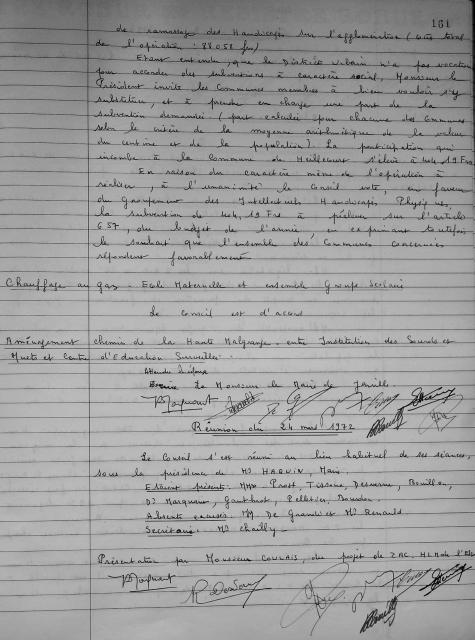 161
de ramassage des Handicapés sur l'agglomération (coût total
de l'opération : 88 058 frs)
Etant entendu, que le District Urbain n'a pas vocation
pour accorder des subventions à caractère social, Monsieur le
Président invite les Communes membres à bien vouloir s'y
substituer, et à prendre en charge une part de la
subvention demandée (part calculée pour chacune des Communes
selon le critère de la moyenne arithmétique de la valeur
du centime et de la population). La participation qui
incombe à la Commune de Heillecourt s'élève à 404,19 Frs
En raison du caractère même de l'opération à
réaliser, à l'unanimité le Conseil vote, en faveur
du Groupement des Intellectuels Handicapés Physiques,
la subvention de 404,19 Frs à prélever sur l'article
657, du budget de l'année, en exprimant toutefois
le souhait que l'ensemble des Communes concernées
répondent favorablement
Chauffage au gaz - Ecole Maternelle et ensemble Groupe Scolaire
Le Conseil est d'accord
Aménagement chemin de la Haute Malgrange entre Institution des Sourds et
Muets et Centre d'Education Surveillée.
Ecrire à Monsieur le Maire de Jarville.
Réunion du 24 mars 1972
Le Conseil s'est réuni au lieu habituel de ses séances,
sous la présidence de Mr HAQUIN, Maire.
Etaient présents : MM Prost, Tissane, Bouillon,
Dr Marquant, Gauthrot, Pelletier, Bourdon.
Absents excusés : MM. De Grandi et Mr Renard.
Secrétaire : Mr Chailly
Présentation par Monsieur COULAIS, du projet de ZAC, HLM de